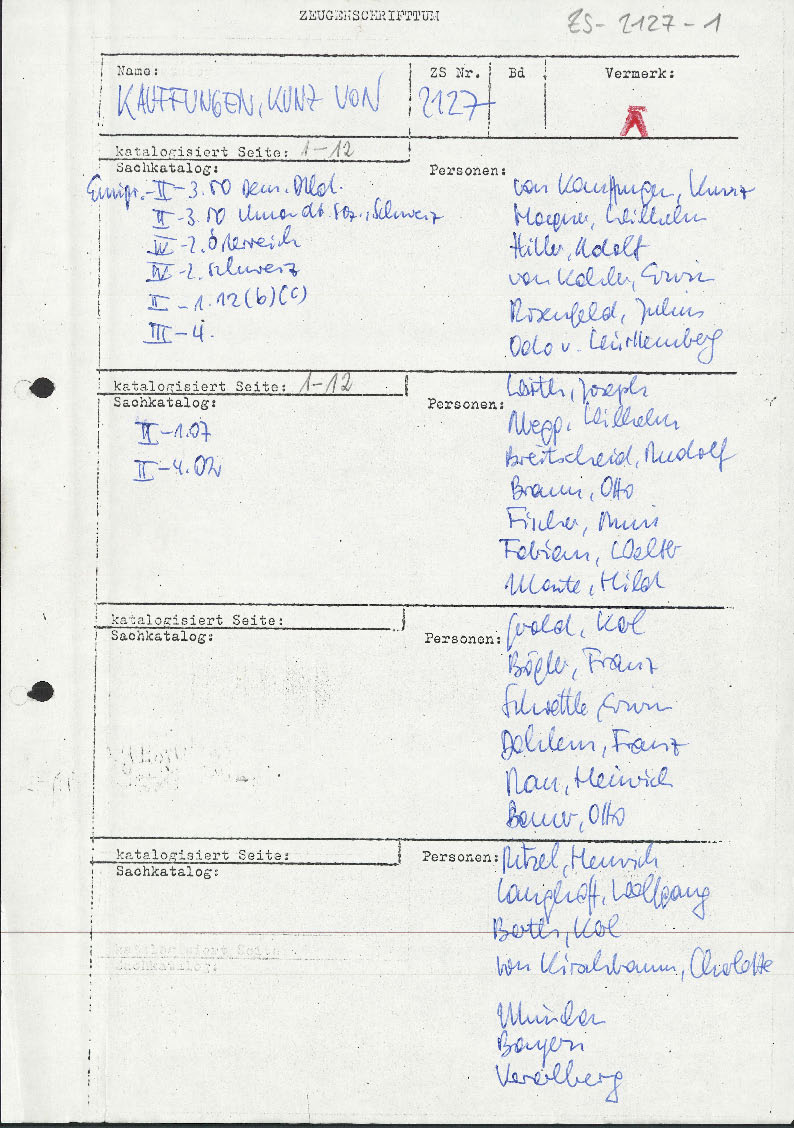 ZEUGENSCHRIFTTUM
ZS-2127-1
Name: ZS Nr. Bd Vermerk:
KAUFFUNGEN, KUNZ VON 2127
katalogisiert Seite: 1-12
Sachkatalog: Personen:
II-3.50
II-3.50 Schweiz
IV-2. Österreich
IV-2. Schweiz
II-1.12(b)(c)
III-4.
von Kauffungen, Kunz
Hoegner, Wilhelm
Hitler, Adolf
von Kahler, Erwin
Rosenfeld, Julius
Odo v. Württemberg
katalogisiert Seite: 1-12
Sachkatalog: Personen:
II-1.07
II-4.02
Wirth, Joseph
Abegg, Wilhelm
Breitscheid, Rudolf
Braun, Otto
Fischer,
Fabian, Walter
Monte, Hilda
katalogisiert Seite:
Sachkatalog: Personen:
Gerold, Karl
Bögler, Franz
Schoettle, Erwin
Dahlem, Franz
Mann, Heinrich
Bauer, Otto
katalogisiert Seite:
Sachkatalog: Personen:
Ritzel, Heinrich
Langhoff, Wolfgang
Barth, Karl
von Kirschbaum, Charlotte
München
Bayern
Vorarlberg